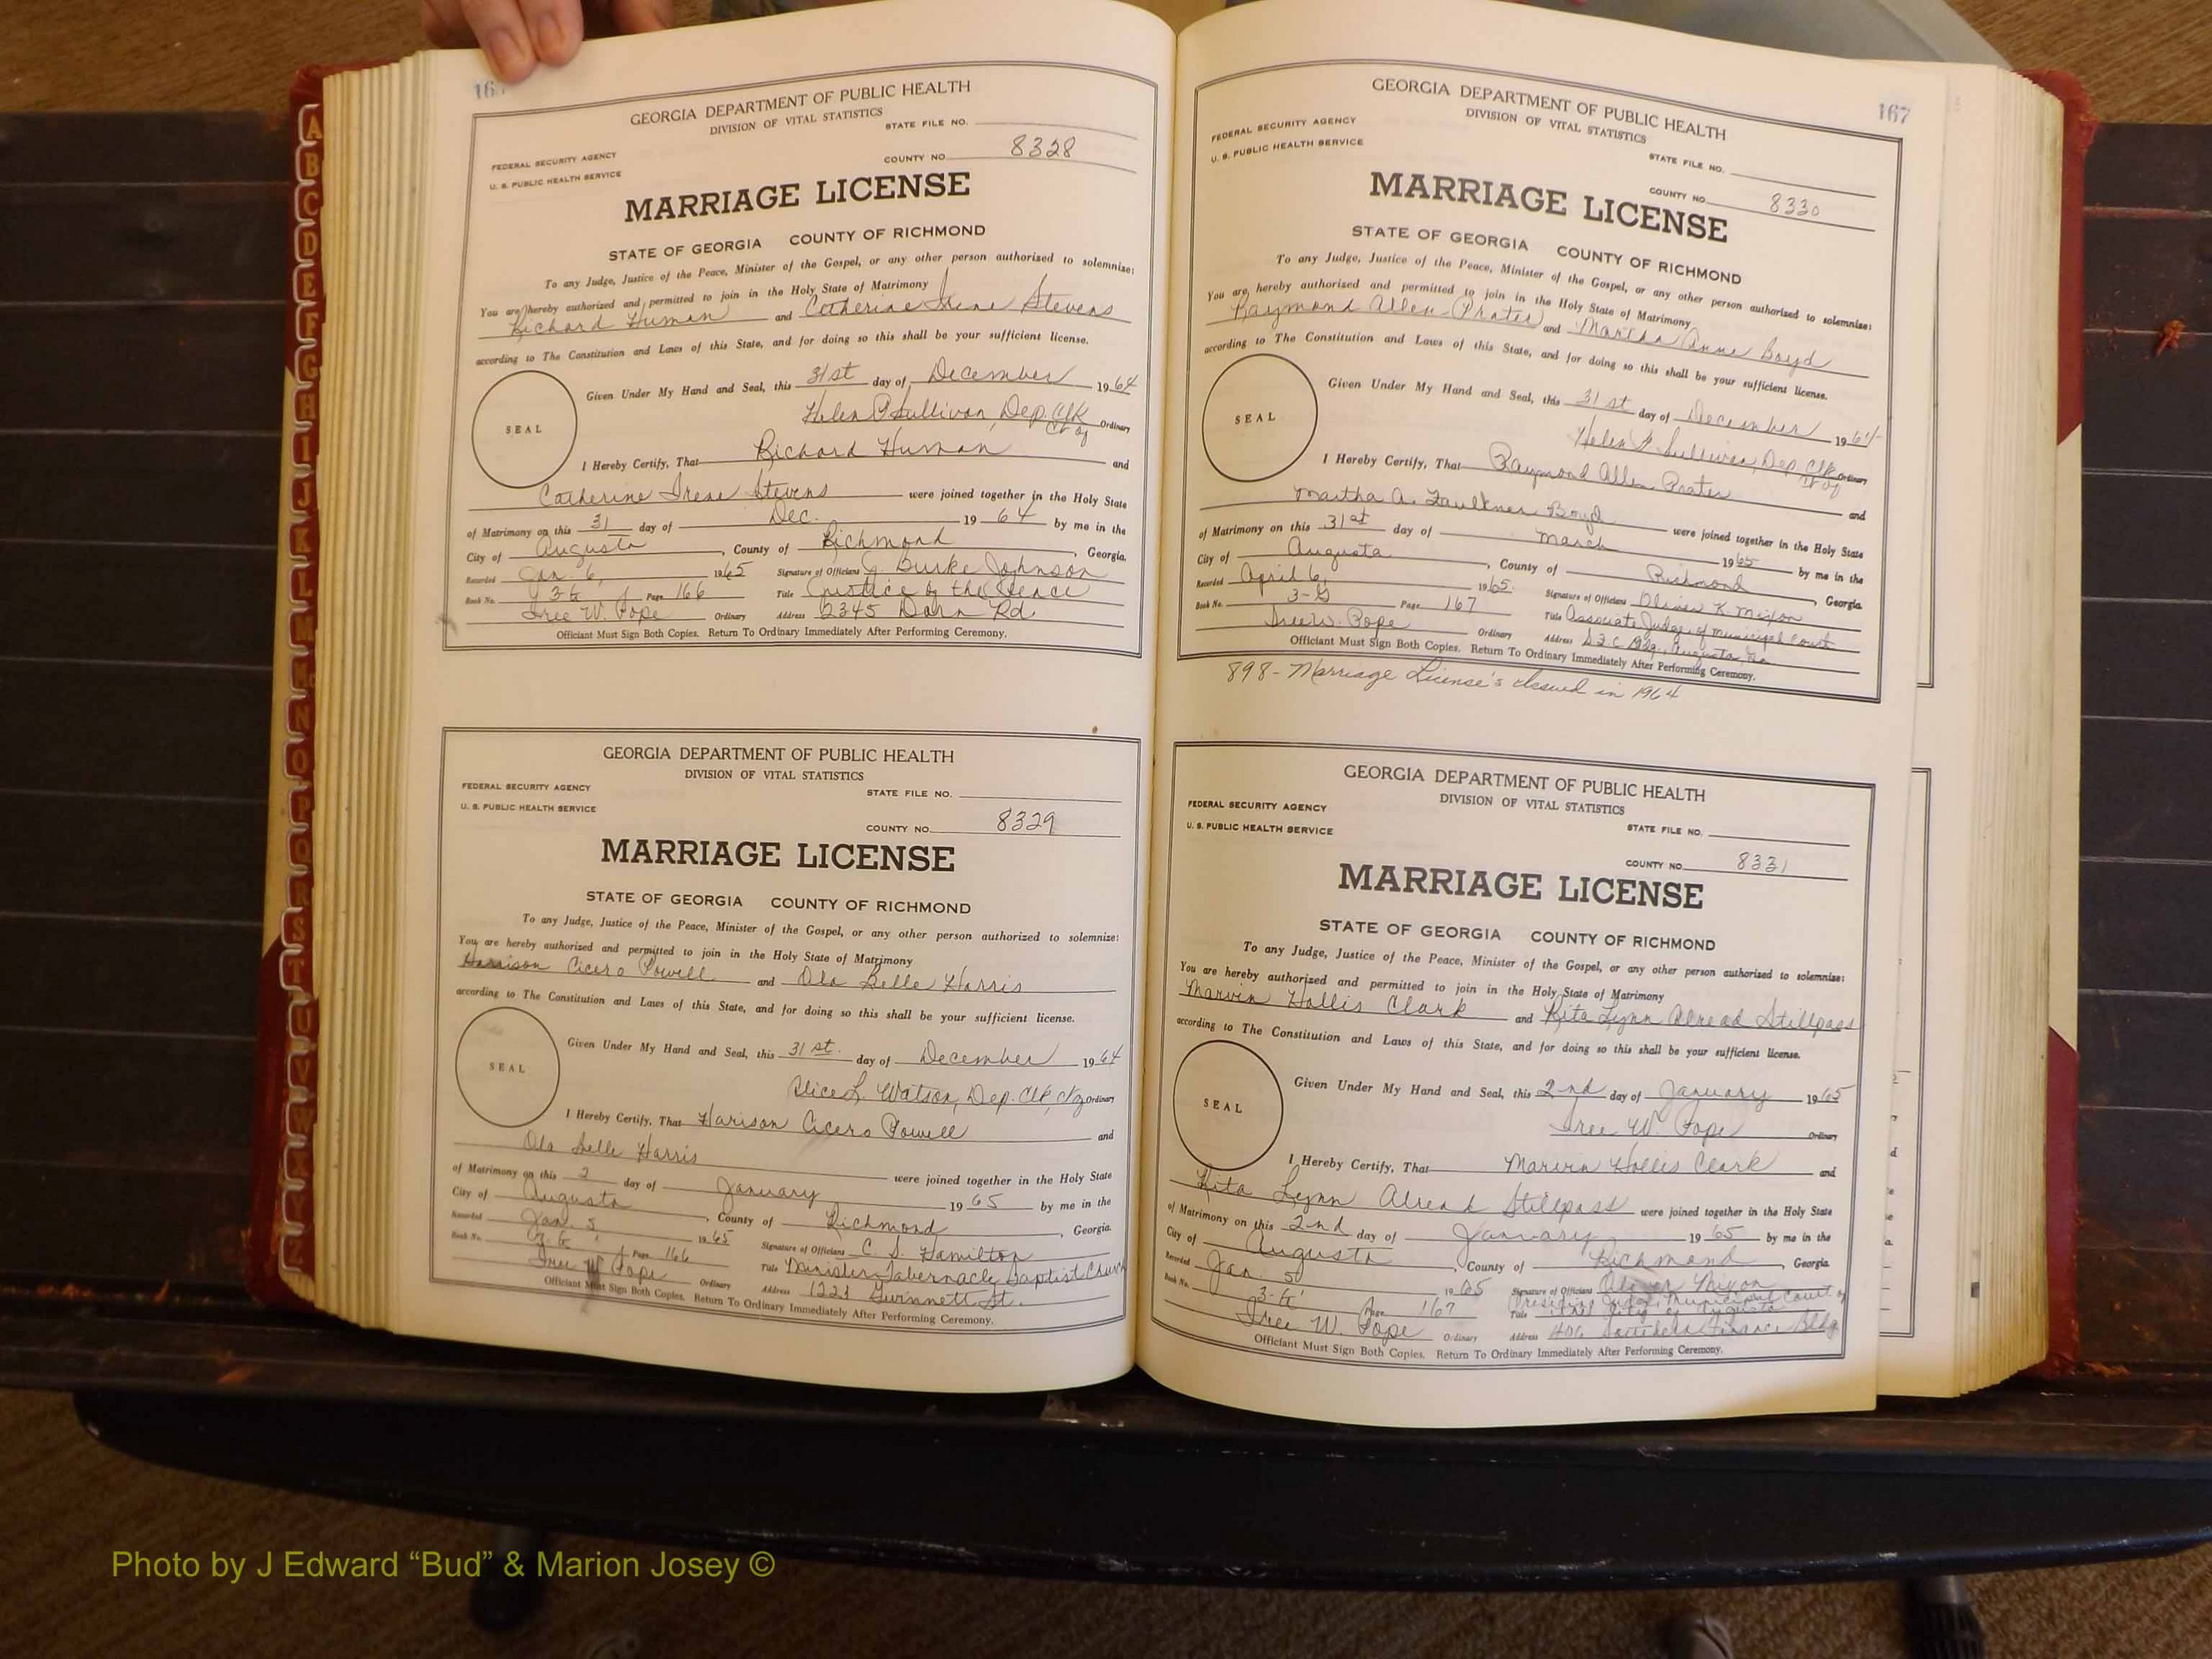 GEORGIA DEPARTMENT OF PUBLIC HEALTH
DIVISION OF VITAL STATISTICS
STATE FILE NO.
FEDERAL SECURITY AGENCY
U. S. PUBLIC HEALTH SERVICE
COUNTY NO. 8328
MARRIAGE LICENSE
STATE OF GEORGIA COUNTY OF RICHMOND
To any Judge, Justice of the Peace, Minister of the Gospel, or any other person authorized to solemnize:
You are hereby authorized and permitted to join in the Holy State of Matrimony
Richard Human and Catherine Irene Stevens
according to The Constitution and Laws of this State, and for doing so this shall be your sufficient license.
Given Under My Hand and Seal, this 31st day of December 1964
SEAL
Helen P. Sullivan, Dep. Clk Ct of Ordinary
I Hereby Certify, That Richard Human and
Catherine Irene Stevens were joined together in the Holy State
of Matrimony on this 31 day of Dec. 1964 by me in the
City of Augusta, County of Richmond, Georgia.
Recorded Jan. 6, 1965 Signature of Officiant G. Burke Johnson
Book No. 3-G Page 166 Title Justice of the Peace
Iree W. Pope Ordinary Address 2345 Barn Rd
Officiant Must Sign Both Copies. Return To Ordinary Immediately After Performing Ceremony.
GEORGIA DEPARTMENT OF PUBLIC HEALTH
DIVISION OF VITAL STATISTICS
STATE FILE NO.
FEDERAL SECURITY AGENCY
U. S. PUBLIC HEALTH SERVICE
COUNTY NO. 8329
MARRIAGE LICENSE
STATE OF GEORGIA COUNTY OF RICHMOND
To any Judge, Justice of the Peace, Minister of the Gospel, or any other person authorized to solemnize:
You are hereby authorized and permitted to join in the Holy State of Matrimony
Harrison Cicero Powell and Ola Belle Harris
according to The Constitution and Laws of this State, and for doing so this shall be your sufficient license.
Given Under My Hand and Seal, this 31st. day of December 1964
SEAL
Alice L. Watson, Dep. Clk, Ordinary
I Hereby Certify, That Harison Cicero Powell and
Ola Belle Harris were joined together in the Holy State
of Matrimony on this 2 day of January 1965 by me in the
City of Augusta, County of Richmond, Georgia.
Recorded Jan. 5, 1965 Signature of Officiant C. S. Hamilton
Book No. 3-G Page 166 Title Minister-Tabernacle Baptist Church
Iree W. Pope Ordinary Address 1223 Gwinnett St.
Officiant Must Sign Both Copies. Return To Ordinary Immediately After Performing Ceremony.
167
GEORGIA DEPARTMENT OF PUBLIC HEALTH
DIVISION OF VITAL STATISTICS
FEDERAL SECURITY AGENCY
U. S. PUBLIC HEALTH SERVICE
STATE FILE NO.
COUNTY NO. 8330
MARRIAGE LICENSE
STATE OF GEORGIA COUNTY OF RICHMOND
To any Judge, Justice of the Peace, Minister of the Gospel, or any other person authorized to solemnize:
You are hereby authorized and permitted to join in the Holy State of Matrimony
Raymond Allen Prater and Martha Anne Boyd
according to The Constitution and Laws of this State, and for doing so this shall be your sufficient license.
Given Under My Hand and Seal, this 31st day of December 1964
SEAL
Helen P. Sullivan, Dep. Clk Ct of Ordinary
I Hereby Certify, That Raymond Allen Prater and
Martha A. Faulkner Boyd were joined together in the Holy State
of Matrimony on this 31st day of March 1965 by me in the
City of Augusta, County of Richmond, Georgia.
Recorded April 6, 1965. Signature of Officiant Oliver K. Mixon
Book No. 3-G Page 167 Title Associate Judge, of Municipal Court
Iree W. Pope Ordinary Address Bldg., Augusta, Ga.
Officiant Must Sign Both Copies. Return To Ordinary Immediately After Performing Ceremony.
898 - Marriage License's Issued in 1964
GEORGIA DEPARTMENT OF PUBLIC HEALTH
DIVISION OF VITAL STATISTICS
FEDERAL SECURITY AGENCY
U. S. PUBLIC HEALTH SERVICE
STATE FILE NO.
COUNTY NO. 8331
MARRIAGE LICENSE
STATE OF GEORGIA COUNTY OF RICHMOND
To any Judge, Justice of the Peace, Minister of the Gospel, or any other person authorized to solemnize:
You are hereby authorized and permitted to join in the Holy State of Matrimony
Marvin Hollis Clark and Rita Lynn Alread Stillpass
according to The Constitution and Laws of this State, and for doing so this shall be your sufficient license.
Given Under My Hand and Seal, this 2nd day of January 1965
SEAL
Iree W. Pope Ordinary
I Hereby Certify, That Marvin Hollis Clark and
Rita Lynn Alread Stillpass were joined together in the Holy State
of Matrimony on this 2nd day of January 1965 by me in the
City of Augusta, County of Richmond, Georgia.
Recorded Jan. 5 1965 Signature of Officiant Oliver Mixon
Book No. 3-G Page 167 Title Presiding Judge, Municipal Court of the City of Augusta
Iree W. Pope Ordinary Address 406 Southern Finance Bldg
Officiant Must Sign Both Copies. Return To Ordinary Immediately After Performing Ceremony.
A
B
C
D
E
F
G
H
I
J
K
L
M
Mc
N
O
P
Q
R
S
T
U
V
W
Z
Photo by J Edward “Bud” & Marion Josey ©